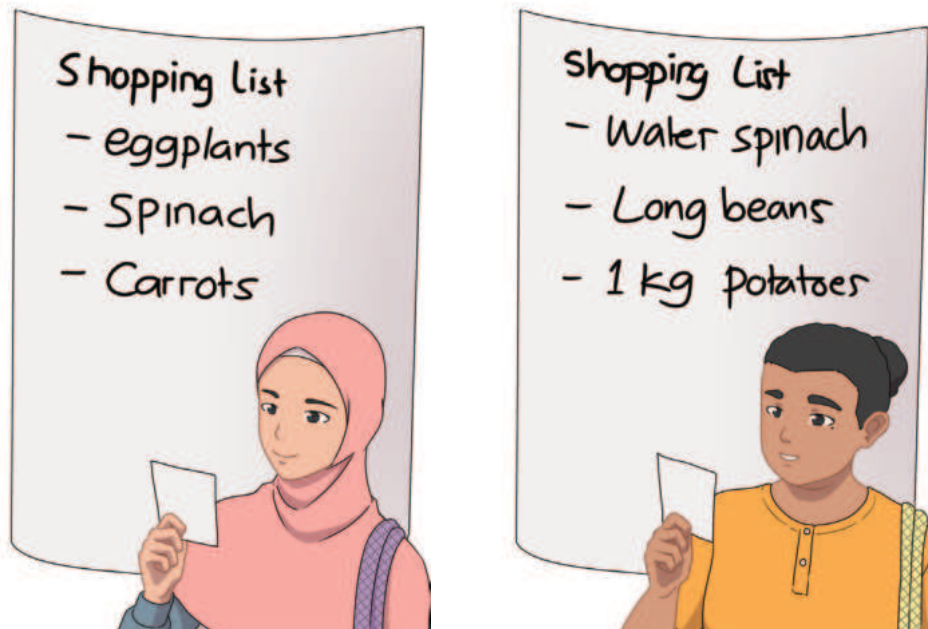 Shopping list
- eggplants
- Spinach
- Carrots
Shopping List
- Water spinach
- Long beans
- 1 kg potatoes